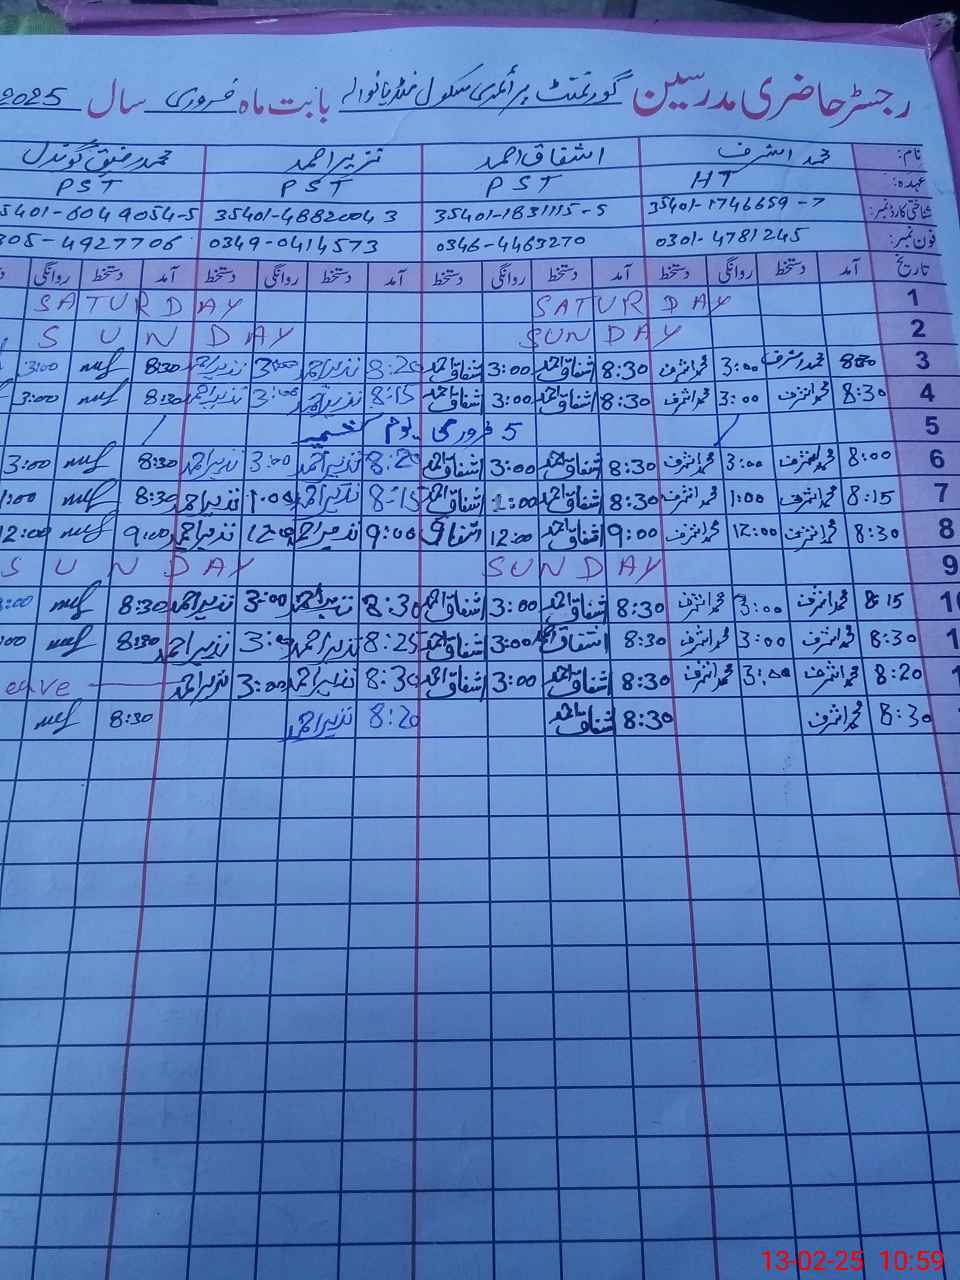 رجسٹر حاضری مدرسین گورنمنٹ پرائمری سکول بابت ماہ فروری سال 2025
نام: محمد اشرف اشفاق احمد نزیر احمد محمد رفیق گوندل
عہدہ: HT PST PST PST
شناختی کارڈ نمبر: 35401-1746659-7 35401-1831115-5 35401-4882004 3 5401-6049054-5
فون نمبر: 0301-4781245 0346-4463270 0349-0414573 305-4927706
تاریخ آمد دستخط روانگی دستخط آمد دستخط روانگی دستخط آمد دستخط روانگی دستخط آمد دستخط روانگی
1 SATURDAY SATURDAY
2 SUNDAY SUNDAY
3 محمد اشرف 3:00 محمد اشرف 8:30 اشفاق احمد 3:00 اشفاق احمد 8:20 نذیر احمد 3:00 نذیر احمد 8:30 3:00
4 8:30 محمد اشرف 3:00 محمد اشرف 8:30 اشفاق احمد 3:00 اشفاق احمد 8:15 نذیر احمد 3:00 نذیر احمد 8:30 3:00
5 5 فروری یوم کشمیر
6 8:00 محمد اشرف 3:00 محمد اشرف 8:30 اشفاق احمد 3:00 اشفاق احمد 8:20 نذیر احمد 3:00 نذیر احمد 8:30 3:00
7 8:15 محمد اشرف 1:00 محمد اشرف 8:30 اشفاق احمد 1:00 اشفاق احمد 8:15 نذیر احمد 1:00 نذیر احمد 8:30 1:00
8 8:30 محمد اشرف 12:00 محمد اشرف 9:00 اشفاق احمد 12:00 اشفاق 9:00 نذیر احمد 12:00 نذیر احمد 9:00 12:00
9 SUNDAY SUNDAY
10 8:15 محمد اشرف 3:00 محمد اشرف 8:30 اشفاق احمد 3:00 اشفاق احمد 8:30 نذیر احمد 3:00 نذیر احمد 8:30 :00
1 8:30 محمد اشرف 3:00 محمد اشرف 8:30 اشفاق احمد 3:00 اشفاق احمد 8:25 نذیر احمد 3:00 نذیر احمد 8:30 :00
1 8:20 محمد اشرف 3:00 محمد اشرف 8:30 اشفاق احمد 3:00 اشفاق احمد 8:30 نذیر احمد 3:00 نذیر احمد eave
8:30 محمد اشرف 8:30 اشفاق احمد 8:20 نذیر احمد 8:30
13-02-25 10:59